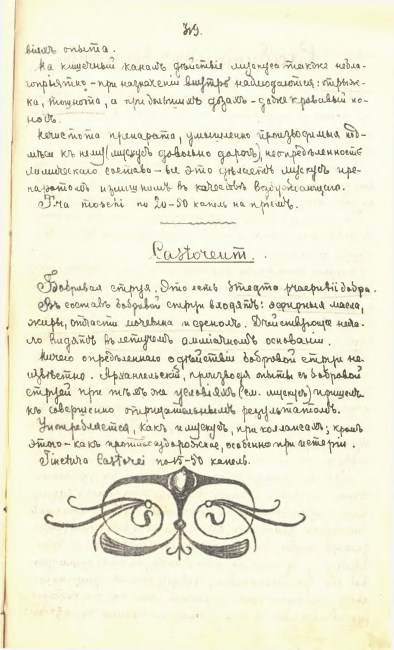 319.
віямъ опыта.
На кишечный каналъ дѣйствіе мускуса также небла-
гопріятно – при назначеніи внутрь наблюдаются: отрыж-
ка, тошнота, а при большихъ дозахъ – даже кровавый по-
носъ.
Нечистота препарата, умышленно производимыя под-
мѣси къ нему (мускусъ довольно дорогъ), неопредѣленность
химическаго состава – все это дѣлаетъ мускусъ пре-
паратомъ излишнимъ въ качествѣ возбуждающаго.
T-ra moschi по 20-50 капель на пріемъ.
Castoreum.
Бобровая струя. Это есть smegma praeputii бобра.
Въ составъ бобровой струи входятъ: эфирныя масла,
жиры, отчасти мочевина и фенолъ. Дѣйствующее нача-
ло видятъ въ летучемъ амміачномъ основаніи.
Ничего опредѣленнаго о дѣйствіи бобровой струи не-
извѣстно. Архангельскій, производя опыты съ бобровой
струей при тѣхъ же условіяхъ (см. мускусъ) пришелъ
къ совершенно отрицательнымъ результатамъ.
Употребляется, какъ и мускусъ, при коллапсахъ; кромѣ
этого – какъ противосудорожное, особенно при истеріи.
Tinctura Castorei по 15-50 капель.